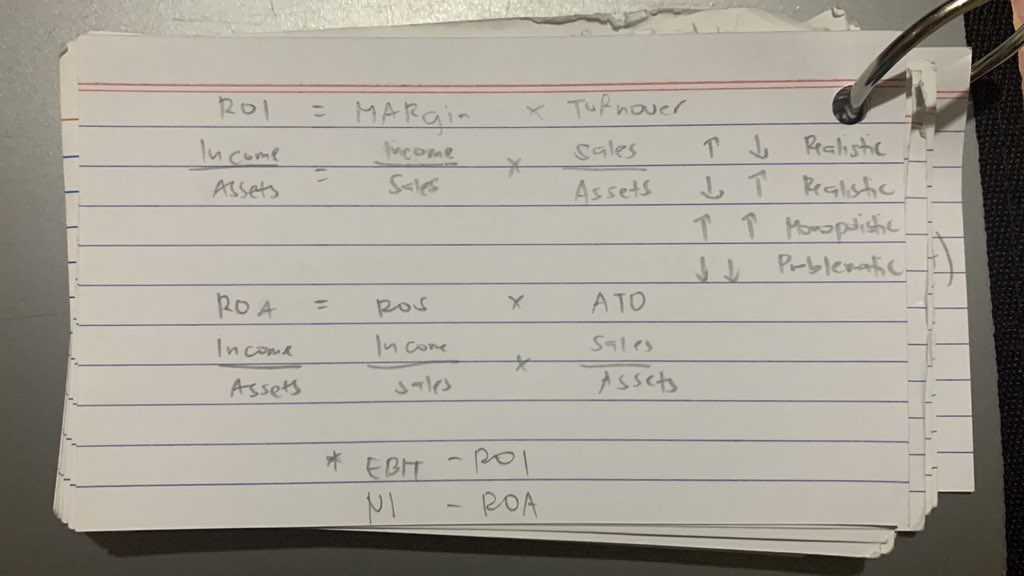 ROI = MARgin × Turnover
Income / Assets = Income / Sales × Sales / Assets
↑ ↓ Realistic
↓ ↑ Realistic
↑ ↑ Monopolistic
↓ ↓ Problematic
ROA = ROS × ATO
Income / Assets Income / Sales × Sales / Assets
* EBIT - ROI
NI - ROA